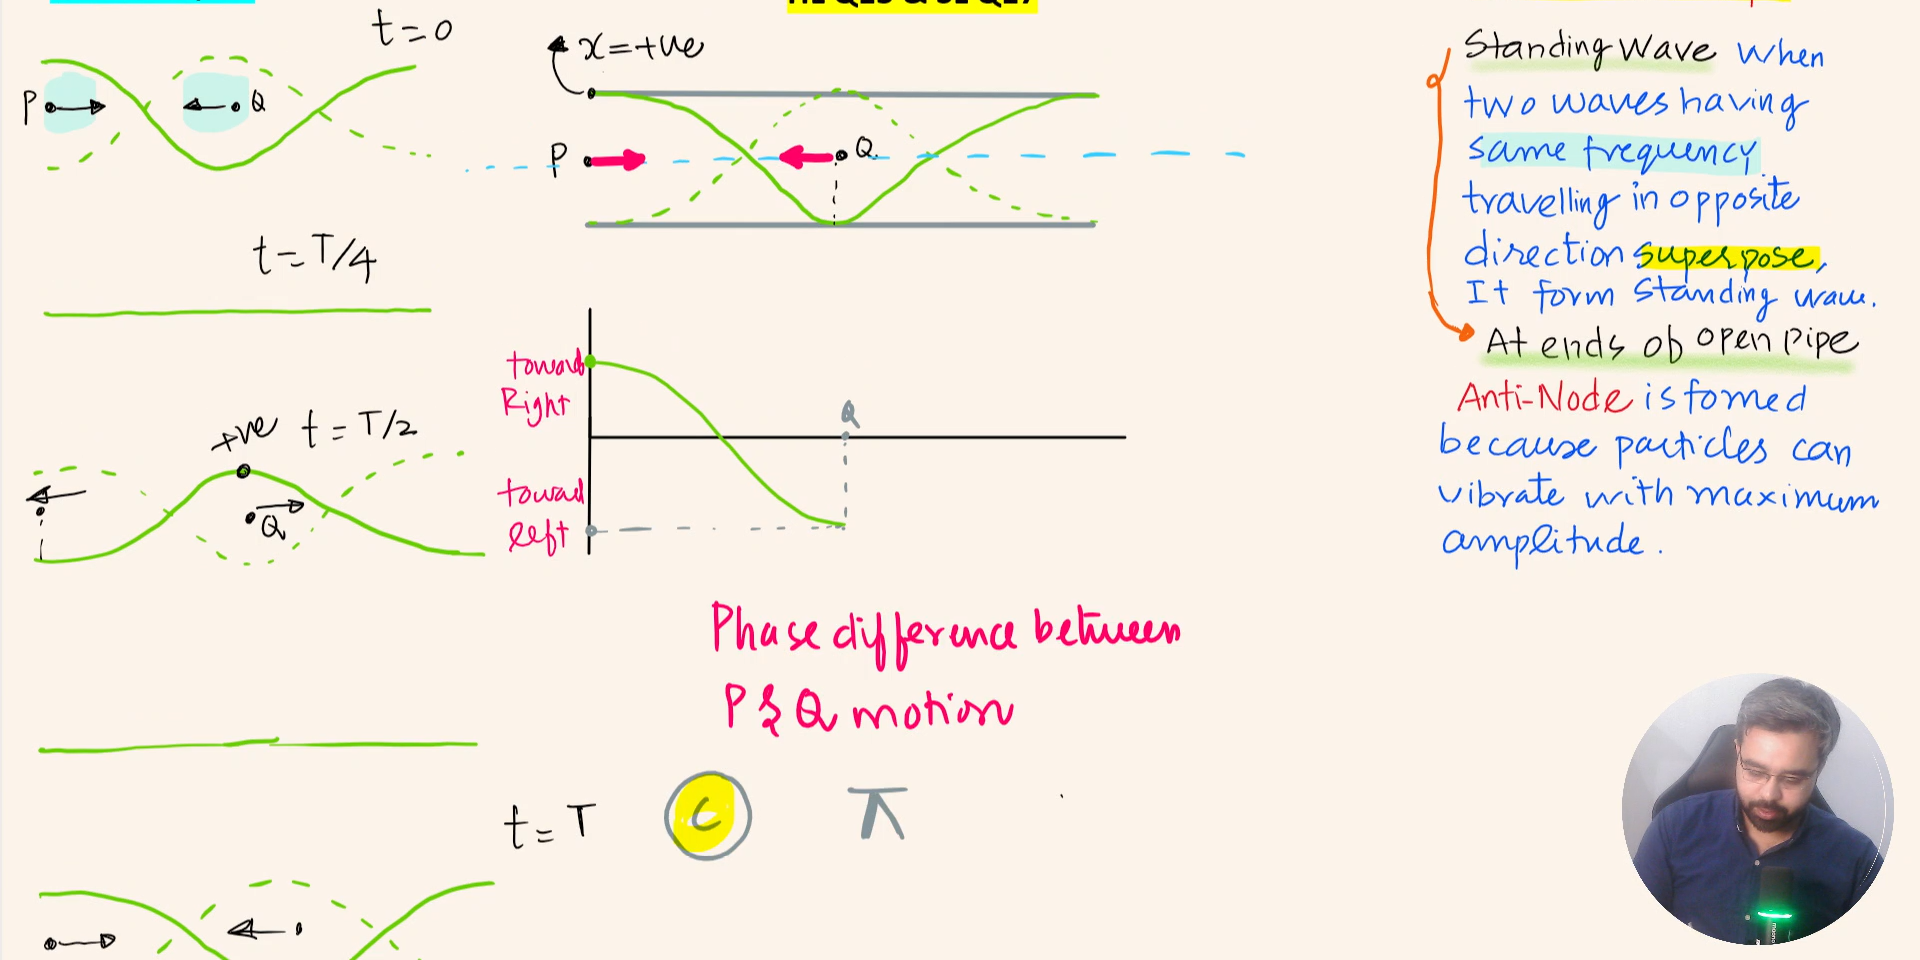 t=0
P
Q
t=T/4
+ve t=T/2
Q
t=T
x=+ve
P
Q
toward
Right
Q
toward
left
Phase difference between
P & Q motion
C π
Standing Wave when
two waves having
same frequency
travelling in opposite
direction superpose,
It form standing wave.
At ends of open pipe
Anti-Node is fomed
because particles can
vibrate with maximum
amplitude.